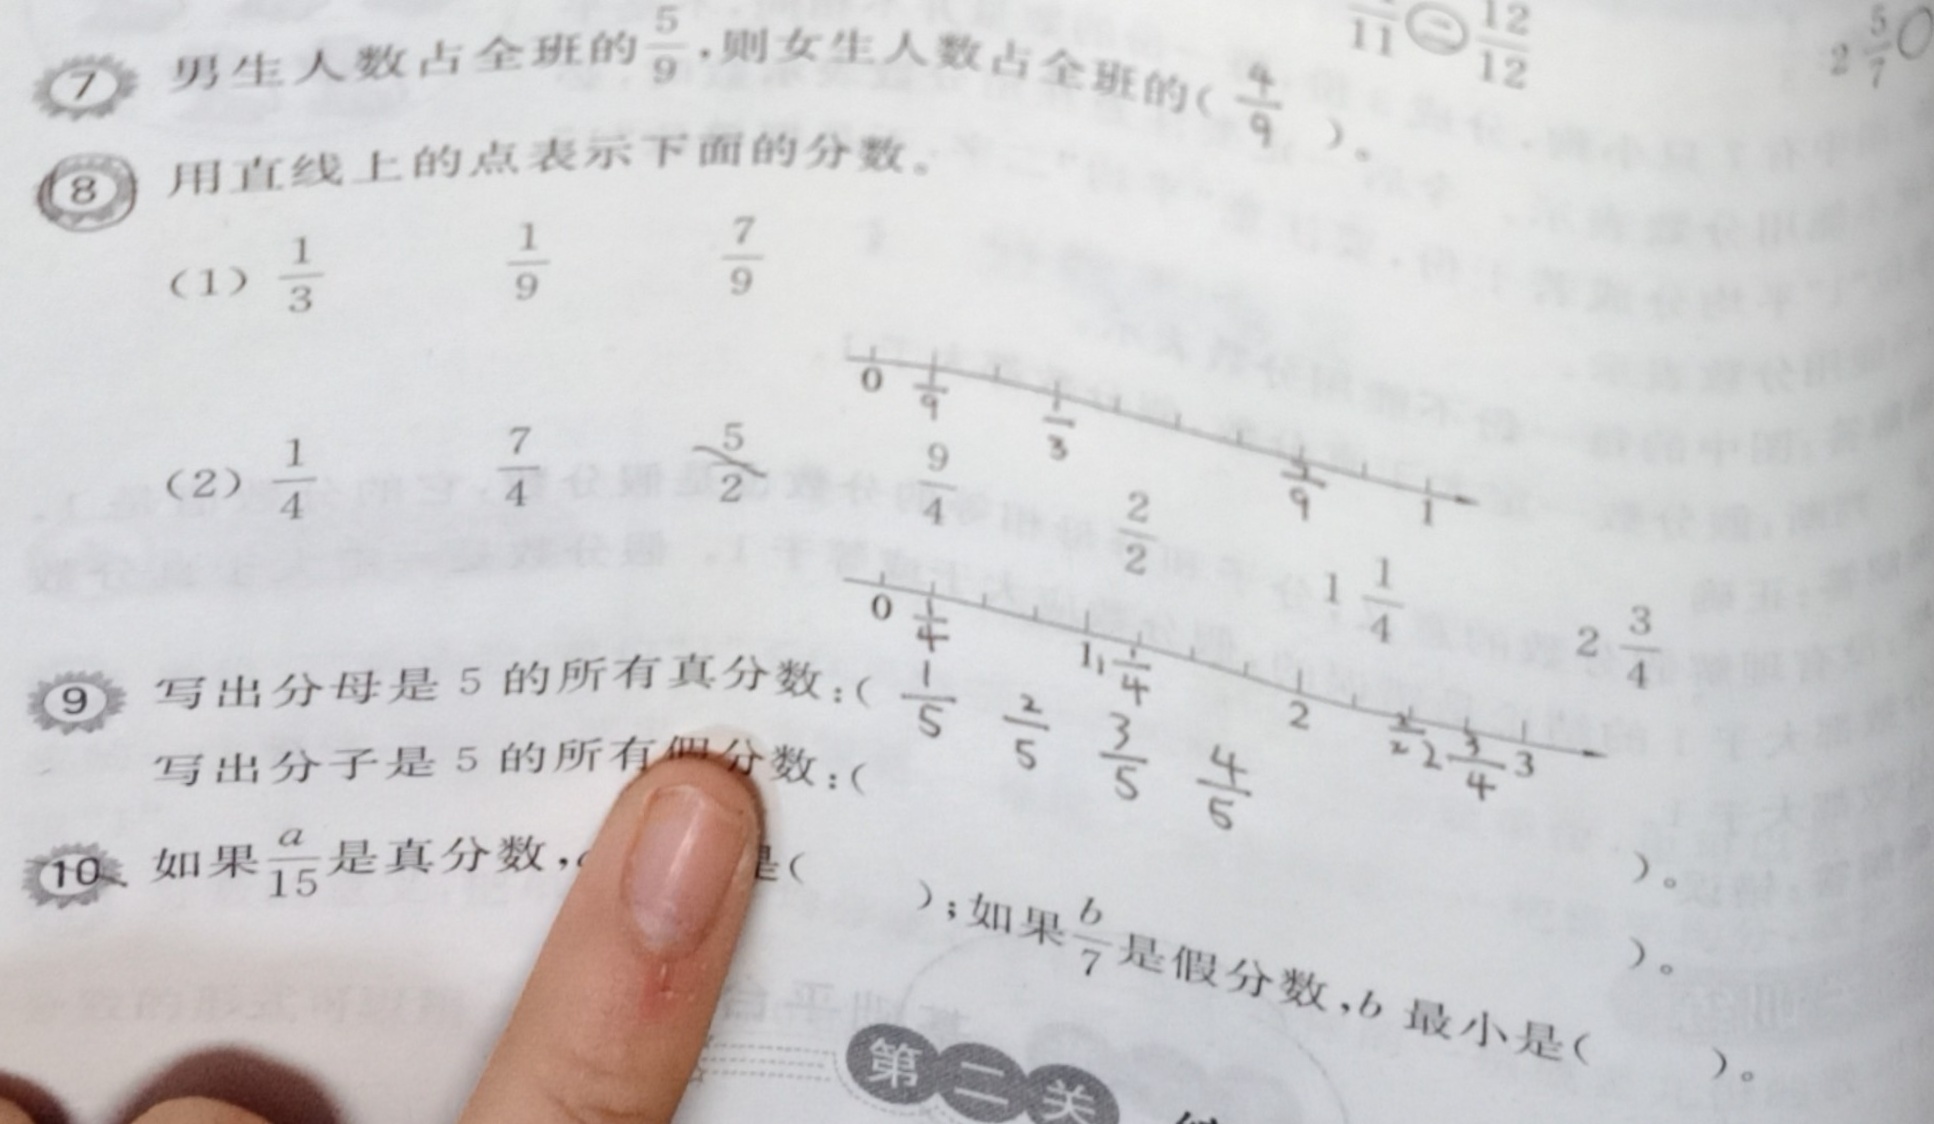 11 = 12/12 2 5/7 ○
7 男生人数占全班的5/9,则女生人数占全班的( 4/9 )。
8 用直线上的点表示下面的分数。
(1) 1/3 1/9 7/9
0 1/9 1/3 9 1
(2) 1/4 7/4 5/2 9/4 2/2 1 1/4 2 3/4
0 1/4 1 1 1/4 2 2 3/4 3
9 写出分母是 5 的所有真分数:( 1/5 2/5 3/5 4/5 )。
写出分子是 5 的所有假分数:( )。
10 如果a/15是真分数, 是( );如果b/7是假分数,b 最小是( )。
第二关